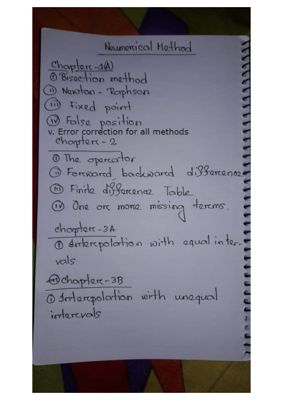 Neumerical Method
Chapter-1(A)
(i) Bisection method
(ii) Newton - Raphson
(iii) Fixed point
(iv) False position
v. Error correction for all methods
Chapter - 2
(i) The operator
(ii) Forward, backward difference
(iii) Finite difference Table
(iv) One or more missing terms.
chapter-3A
(i) Interpolation with equal inter-
vals
Chapter-3B
(i) Interpolation with unequal
intervals